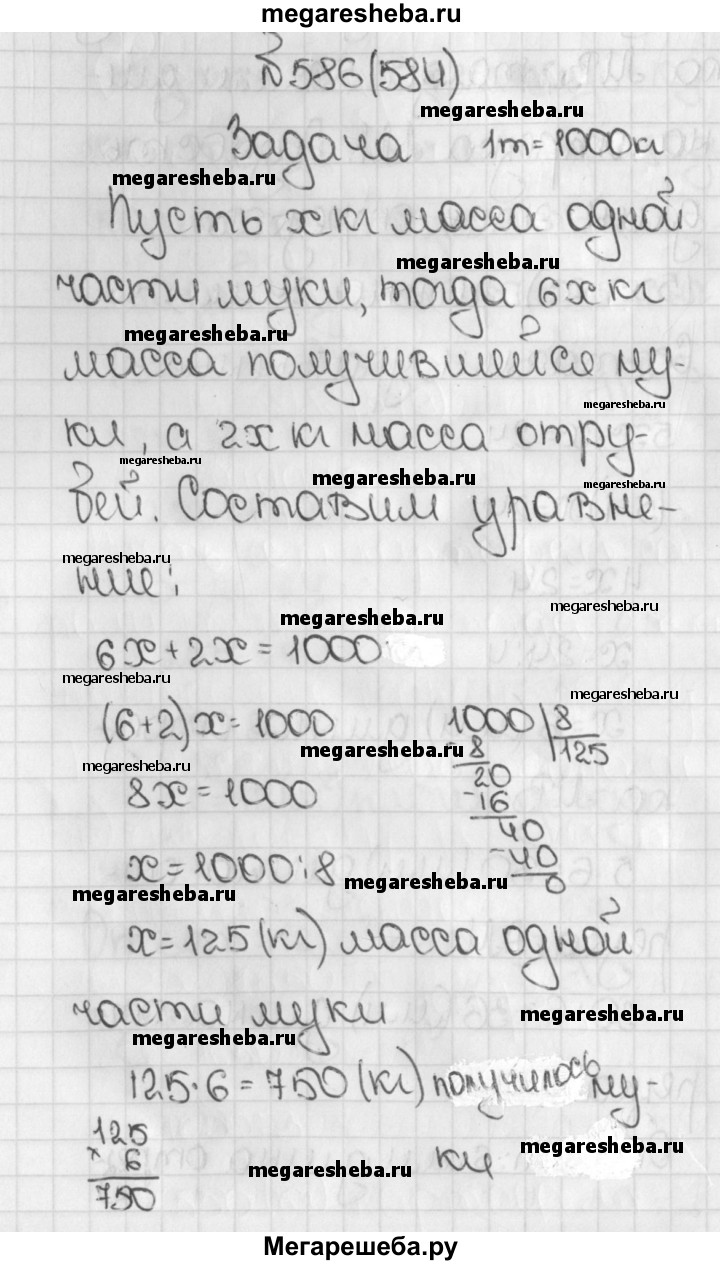 megaresheba.ru
№586(584)
megaresheba.ru
Задача 1т=1000кг
megaresheba.ru
Пусть x кг масса одной
megaresheba.ru
части муки, тогда 6x кг
megaresheba.ru
масса получившейся му-
megaresheba.ru
ки, а 2x кг масса отру-
megaresheba.ru
megaresheba.ru
megaresheba.ru
бей. Составим уравне-
megaresheba.ru
ние:
megaresheba.ru
megaresheba.ru
6x+2x=1000
megaresheba.ru
megaresheba.ru
(6+2)x=1000 1000 8
megaresheba.ru
-8 125
megaresheba.ru
20
8x=1000
-16
40
x=1000:8 -40
megaresheba.ru
megaresheba.ru
0
x=125(кг) масса одной
части муки
megaresheba.ru
megaresheba.ru
125·6=750(кг) получилось му-
125
megaresheba.ru
× 6
ки
megaresheba.ru
750
Мегарешеба.ру